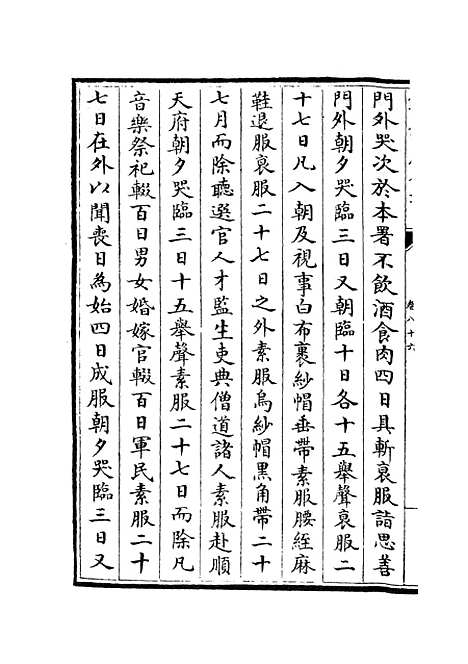 門外哭次於本署不飲酒食肉四日具斬衰服詣思善
門外朝夕哭臨三日又朝臨十日各十五舉聲衰服二
十七日凡入朝及視事白布裹紗帽垂帶素服腰絰麻
鞋退服衰服二十七日之外素服烏紗帽黑角帶二十
七月而除聽選官人才監生吏典僧道諸人素服赴順
天府朝夕哭臨三日十五舉聲素服二十七日而除凡
音樂祭祀輟百日男女婚嫁官輟百日軍民素服二十
七日在外以聞喪日為始四日成服朝夕哭臨三日又
卷八十六